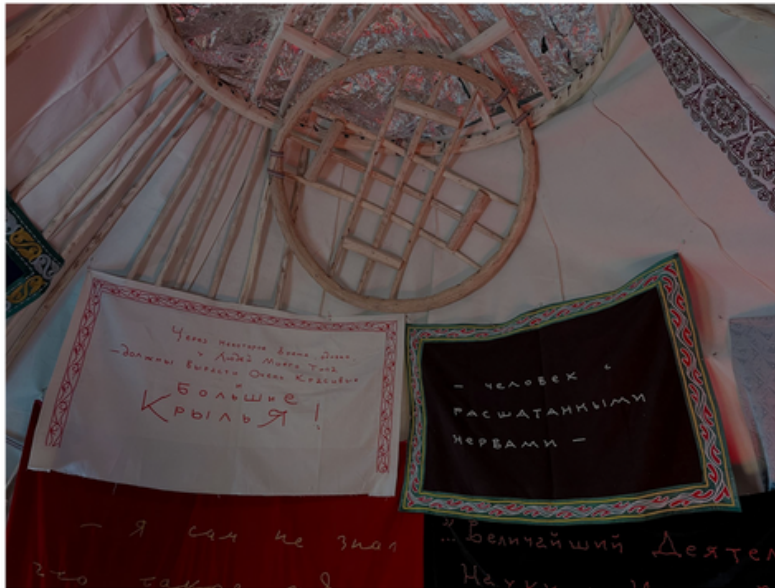 Через некоторое время, даже
у людей моего типа
–должны вырасти очень красивые
и
Большие
Крылья!
– человек с
расшатанными
нервами –
– я сам не знал
что такое
"Величайший Деятел
Науки